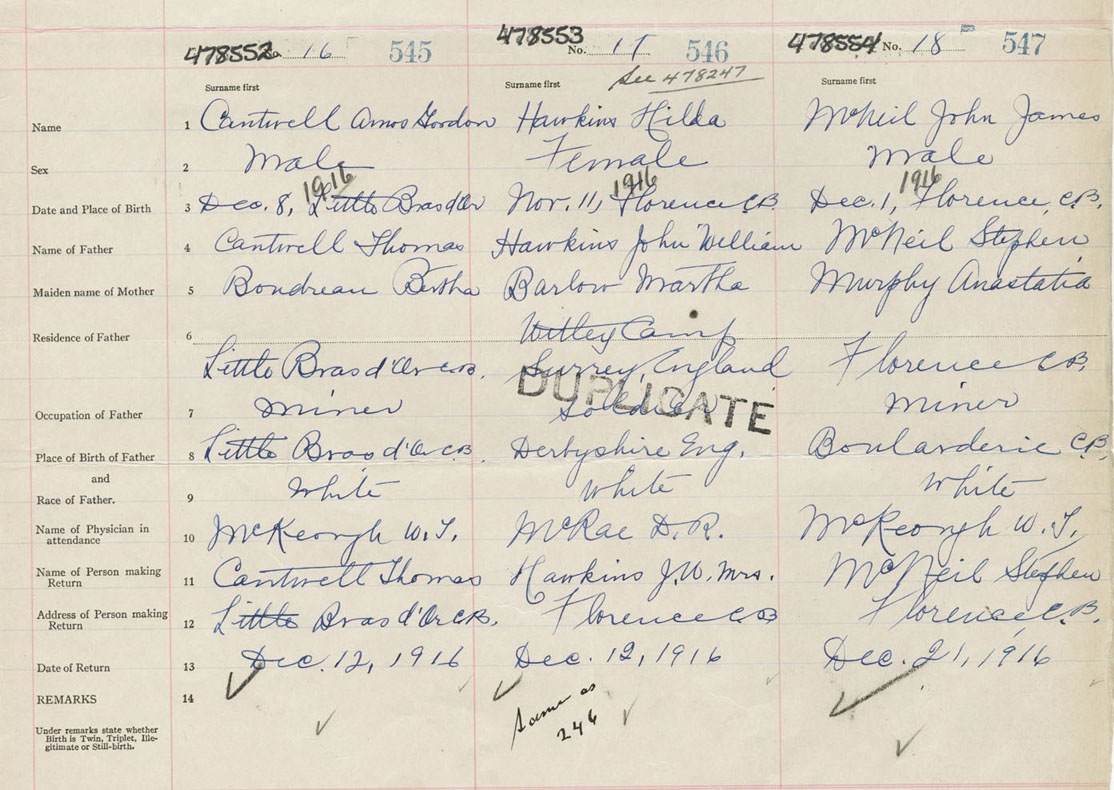 478552 No. 16 545 478553 No. 17 546 478554 No. 18 547
See 478247
Surname first Surname first Surname first
Name 1 Cantwell Amos Gordon Hawkins Hilda McNeil John James
Sex 2 Male Female Male
1916 1916 1916
Date and Place of Birth 3 Dec. 8, Little Bras d'Or Nov. 11, Florence C.B. Dec. 1, Florence, C.B.
Name of Father 4 Cantwell Thomas Hawkins John William McNeil Stephen
Maiden name of Mother 5 Boudreau Bertha Barlow Martha Murphy Anastatia
Residence of Father 6 Witley Camp
Little Bras d'Or C.B. Surrey, England Florence C.B.
DUPLICATE
Occupation of Father 7 Miner Soldier Miner
Place of Birth of Father 8 Little Bras d'Or C.B. Derbyshire Eng. Boularderie C.B.
and
Race of Father. 9 White White White
Name of Physician in
attendance 10 McKeough W. T. McRae D. R. McKeough W. T.
Name of Person making
Return 11 Cantwell Thomas Hawkins J. W. Mrs. McNeil Stephen
Address of Person making
Return 12 Little Bras d'Or C.B. Florence C.B. Florence, C.B.
Date of Return 13 Dec. 12, 1916 Dec. 12, 1916 Dec. 21, 1916
REMARKS 14
Same as
246
Under remarks state whether
Birth is Twin, Triplet, Ille-
gitimate or Still-birth.